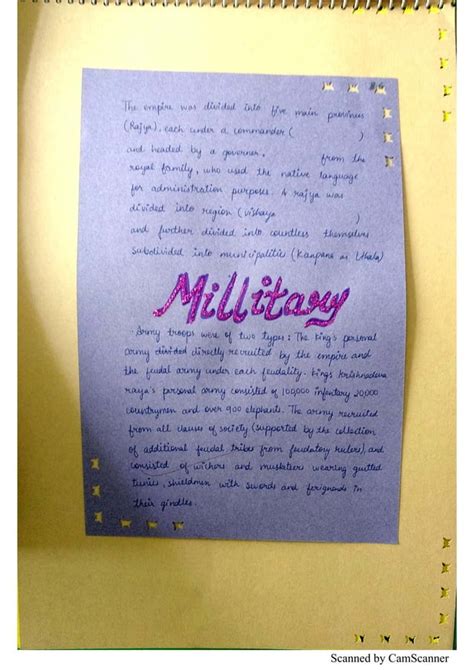 The empire was divided into five main provinces
(Rajya), each under a commander ( )
and headed by a governer, from the
royal family, who used the native language
for administration purposes. A rajya was
divided into region (vishaya )
and further divided into countless themselves
subdivided into municipalities (Kanpana
Millitary
Army troops were of two types: The king's personal
army divided directly recruited by the empire and
the feudal army under each feudality. Kings krishnadeva
raya's personal army consisted of 100,000 infentory 20,000
countrymen and over 900 elephants. The army recruited
from all clauses of society (supported by the collection
of additional feudal tribes from feudatory rulers), and
consisted of and musketiers wearing quitted
tunics, shieldmen with swords and in
their gindles.
Scanned by CamScanner